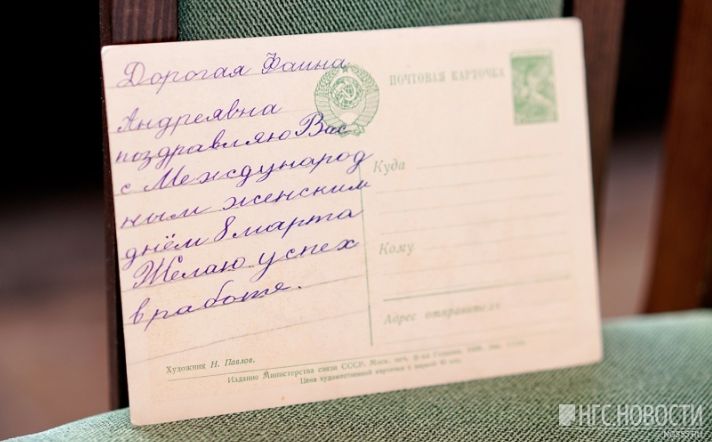 Дорогая Фаина
Андреявна
поздравляю Вас
с Международ
ным женским
днём 8 марта
Желаю успех
в работе.
ПОЧТОВАЯ КАРТОЧКА
Куда
Кому
Адрес отправителя
Художник Н. Павлов.
Издание Министерства связи СССР.
Цена художественной карточки с маркой 40 коп.
НГС.НОВОСТИ